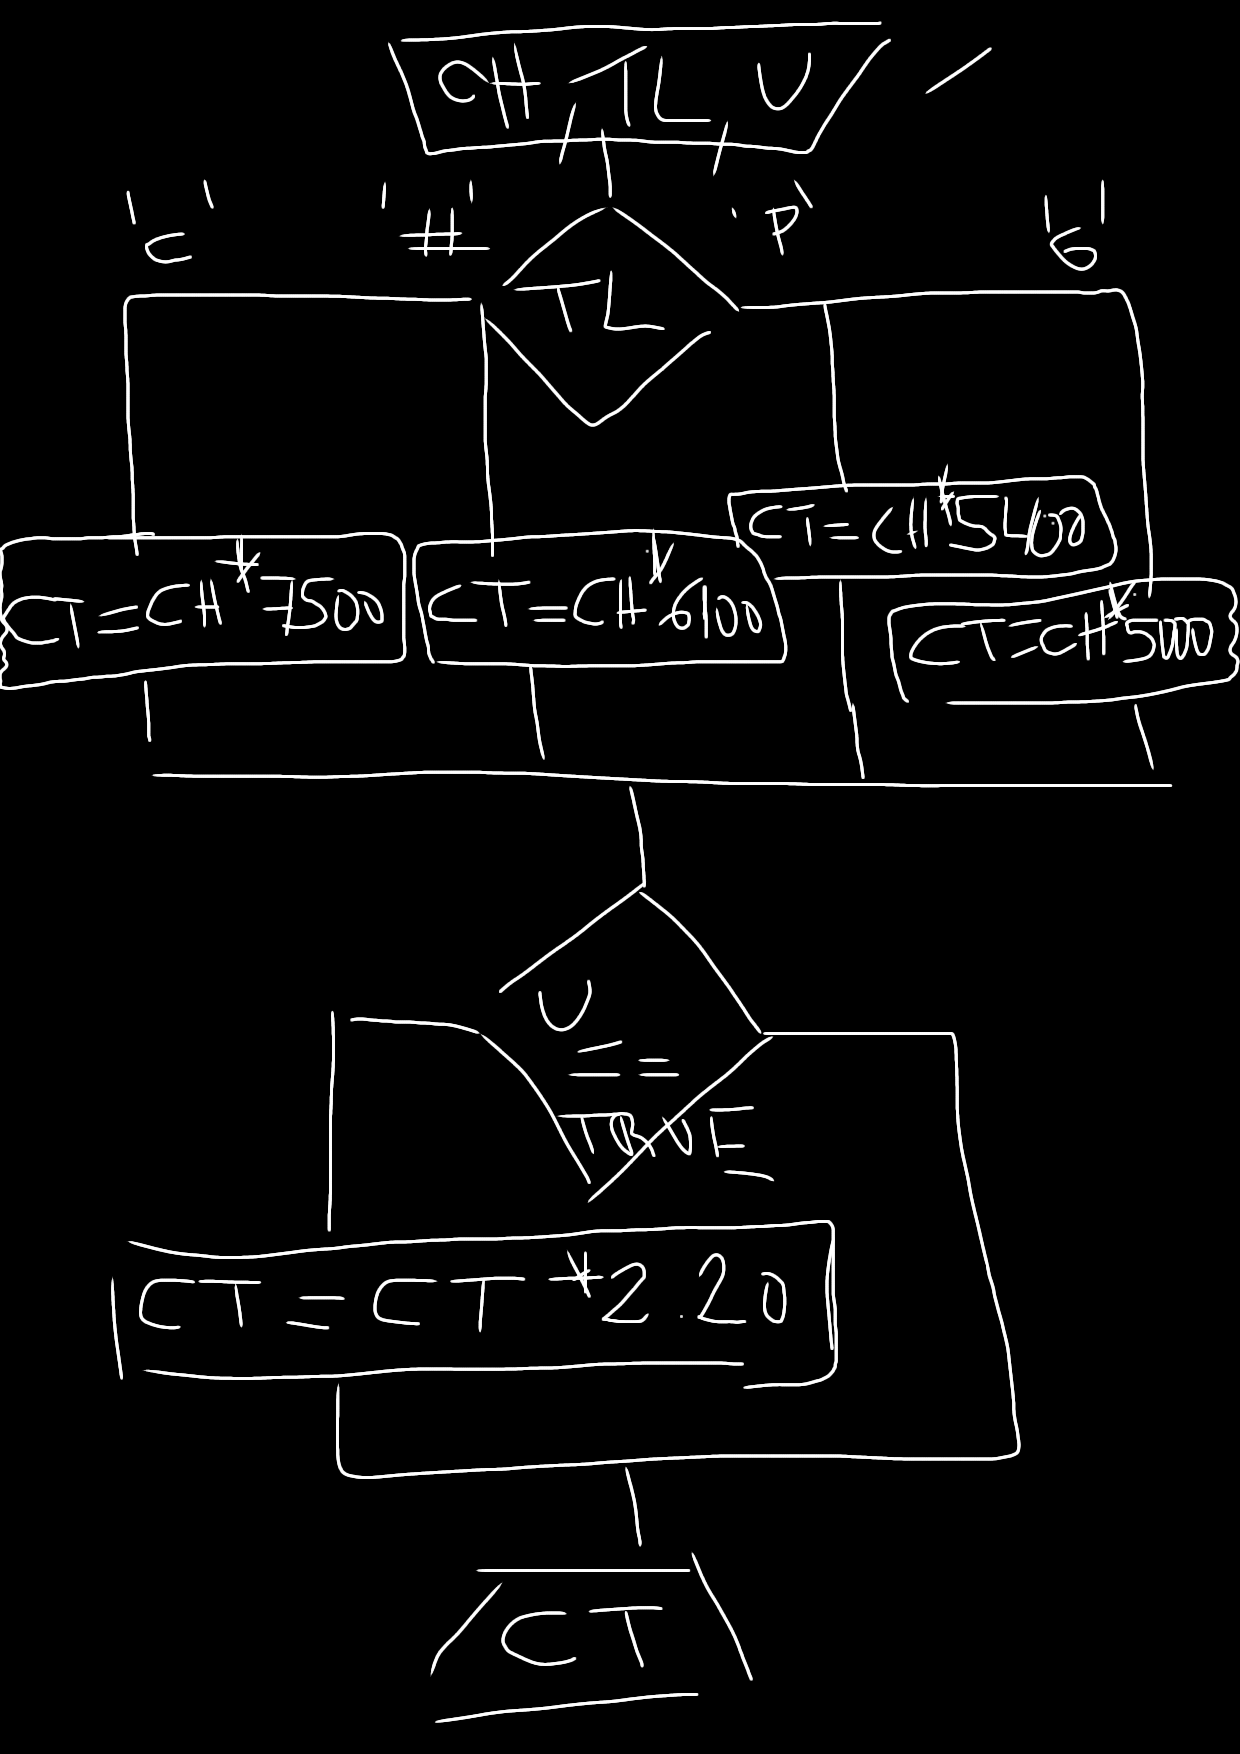 CH, TL, U
'C' 'H' 'P' 'G'
TL
CT = CH * 5400
CT = CH * 7500
CT = CH * 6100
CT = CH * 5000
U
==
TRUE
CT = CT * 2.20
CT